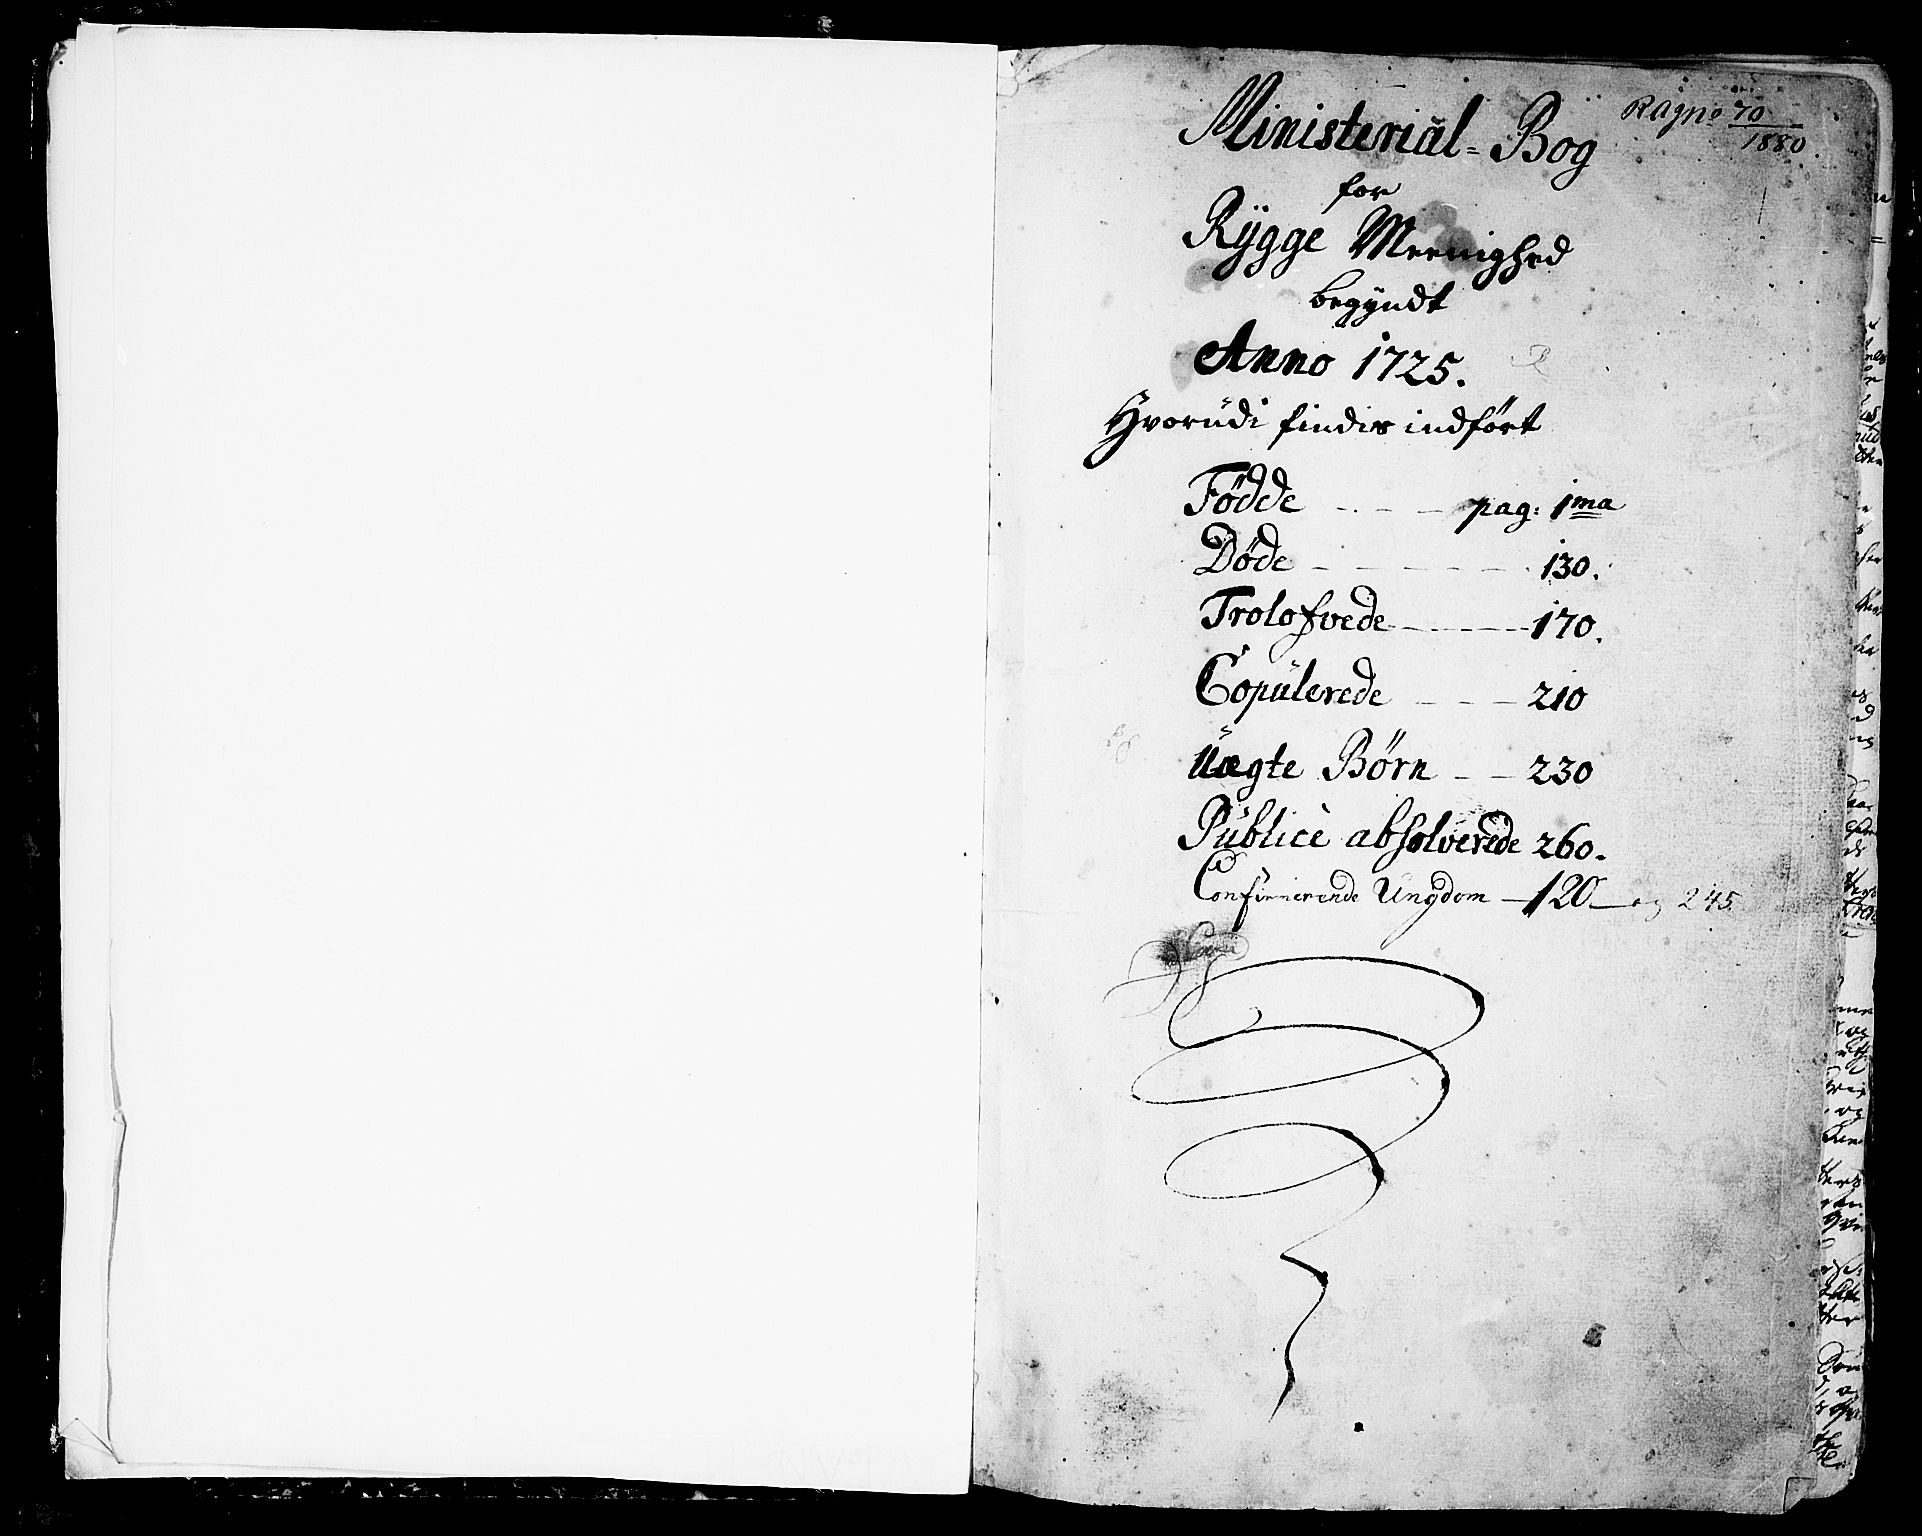 Ministerial=Bog
Ragno 70
1880.
for
Rÿgge Meenighed
begyndt
Anno 1725.
Hvorudi findis indført
Fødde - - - pag: 1ma
Døde - - - - - - 130.
Trolofvede - - - - - 170.
Copulerede - - - 210
Uægte Børn - - 230
Publicè absolverede 260.
Confirmerende Ungdom - 120 - og 245.